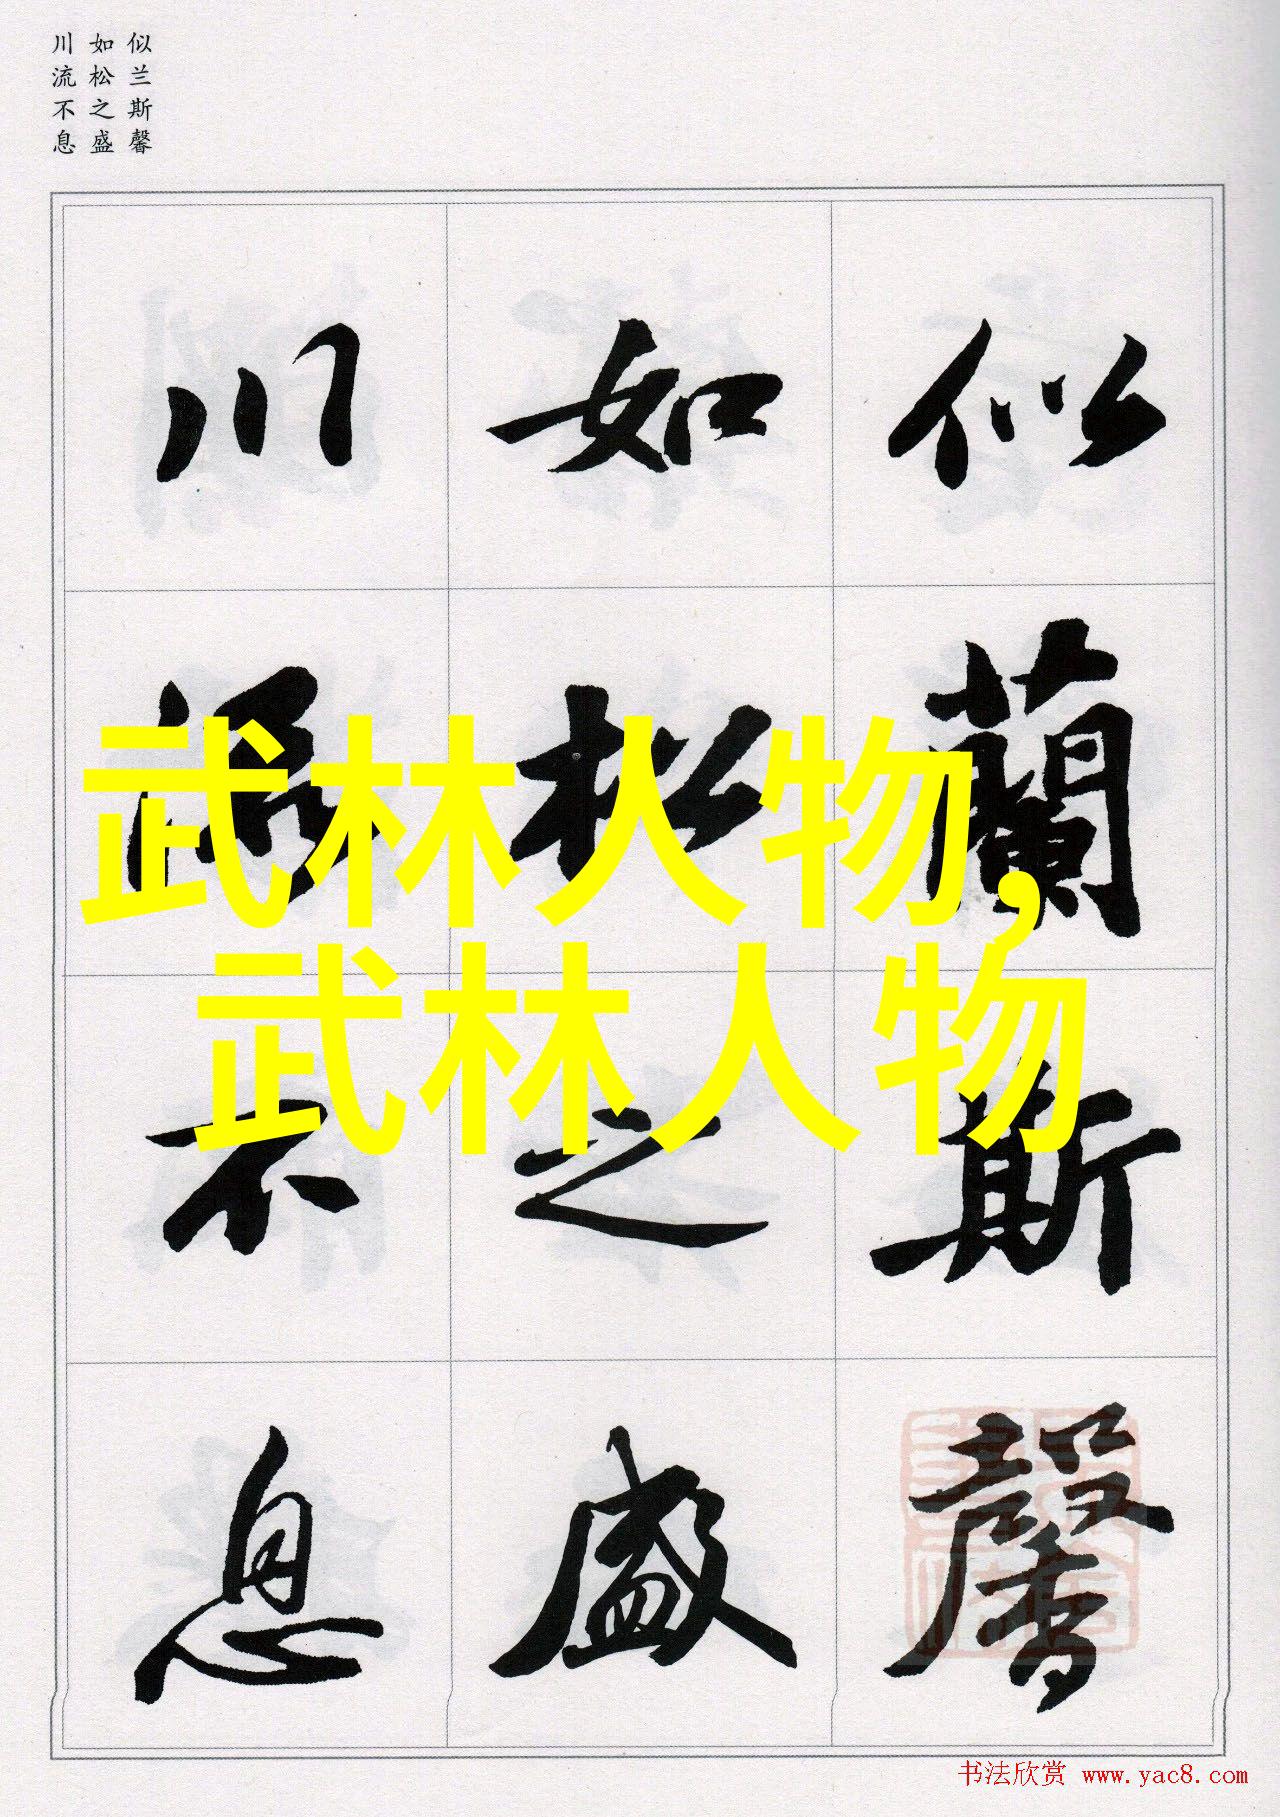 似兰斯馨
如松之盛
川流不息
似蘭斯馨
如松之盛
川流不息
武林人物,
武林人物
书法欣赏 www.yac8.com